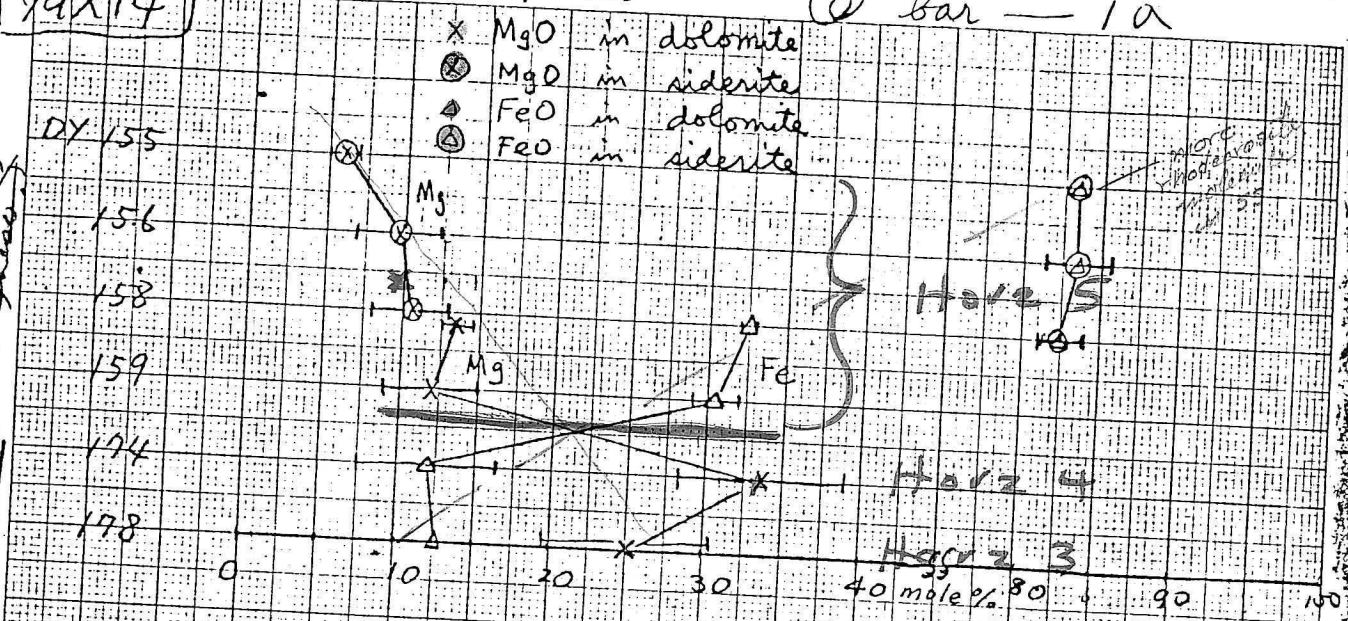 bar — 1σ
x MgO in dolomite
ⓧ MgO in siderite
▲ FeO in dolomite
FeO in siderite
DY 155
156
158
159
174
178
Mg
Mg
Fe
more
Horz 5
Horz 4
Horz 3
0 10 20 30 40 mole % 80 90 100